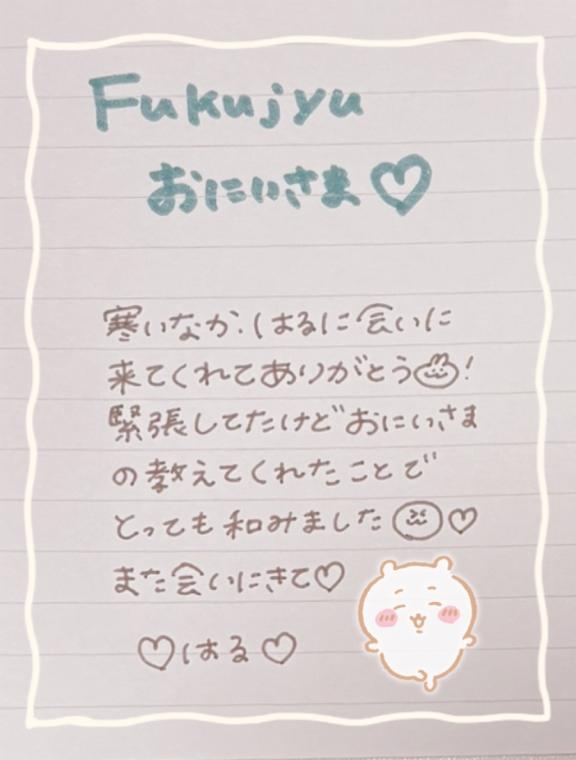 Fukujyu
おにいさま♡
寒いなか、はるに会いに
来てくれてありがとう!
緊張してたけどおにいさま
の教えてくれたことで
とっても和みました♡
また会いにきて♡
♡はる♡